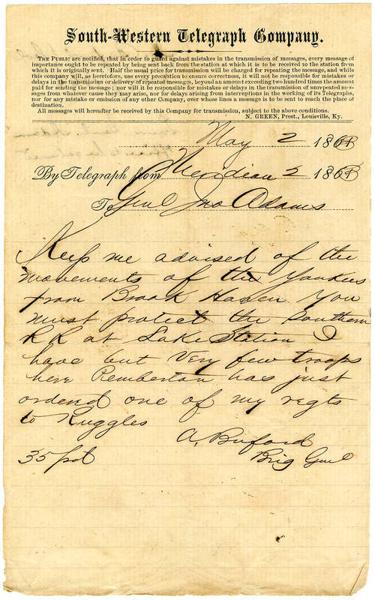 South-Western Telegraph Company.
THE PUBLIC are notified, that in order to guard against mistakes in the transmission of messages, every message of
importance ought to be repeated by being sent back from the station at which it is to be received to the station from
which it is originally sent. Half the usual price for transmission will be charged for repeating the message, and while
this company will, as heretofore, use every precaution to ensure correctness, it will not be responsible for mistakes or
delays in the transmission or delivery of repeated messages, beyond an amount exceeding two hundred times the amount
paid for sending the message; nor will it be responsible for mistakes or delays in the transmission of unrepeated messages
from whatever cause they may arise, nor for delays arising from interruptions in the working of its Telegraphs,
nor for any mistake or omission of any other Company, over whose lines a message is to be sent to reach the place of
destination.
All messages will hereafter be received by this Company for transmission, subject to the above conditions.
N. GREEN, Prest., Louisville, Ky.
May 2 1863
By Telegraph from Meridian 2 1863
To Genl Jno Adams
Keep me advised of the
movements of the Yankees
from Brook Haven You
must protect the Southern
RR at Lake Station I
have but very few troops
here Pemberton has just
orderd one of my regts
to Ruggles
A. Buford
35 pd Brig Genl